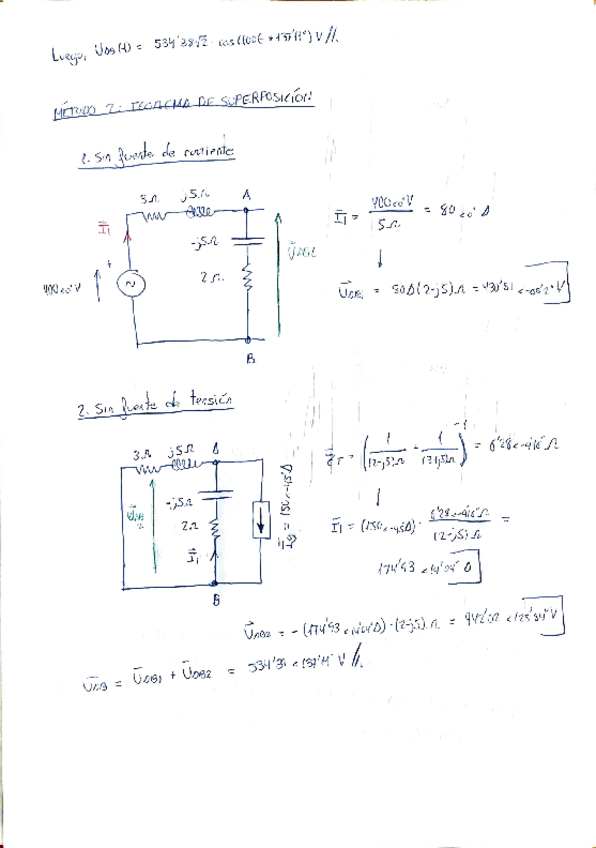 Luego, U_AB(t) = 534'28√2 · cos(100t + 137'11°) V //.
MÉTODO 2: TEOREMA DE SUPERPOSICIÓN:
1. Sin fuente de corriente
3Ω j5Ω A
Ī1
-j5Ω
2Ω
400∠0°V
+
~
Ū_AB1
B
Ī1 = 400∠0°V / 5Ω = 80∠0° A
Ū_AB1 = 80A (2-j5)Ω = 430'81∠-68'2° V
2. Sin fuente de tensión
3Ω j5Ω A
-j5Ω
2Ω
Ī1
Ū_AB2
Īg = 150∠-45°A
B
Z̄T = (1/(2-j5)Ω + 1/(3+j5)Ω)⁻¹ = 6'28∠-9'16° Ω
Ī1 = (150∠-45A) · 6'28∠-9'16°Ω / (2-j5)Ω =
174'93∠14'04° A
Ū_AB2 = -(174'93∠14'04°A)·(2-j5)Ω = 942'02∠125'84° V
Ū_AB = Ū_AB1 + Ū_AB2 = 534'31∠137'11° V //.